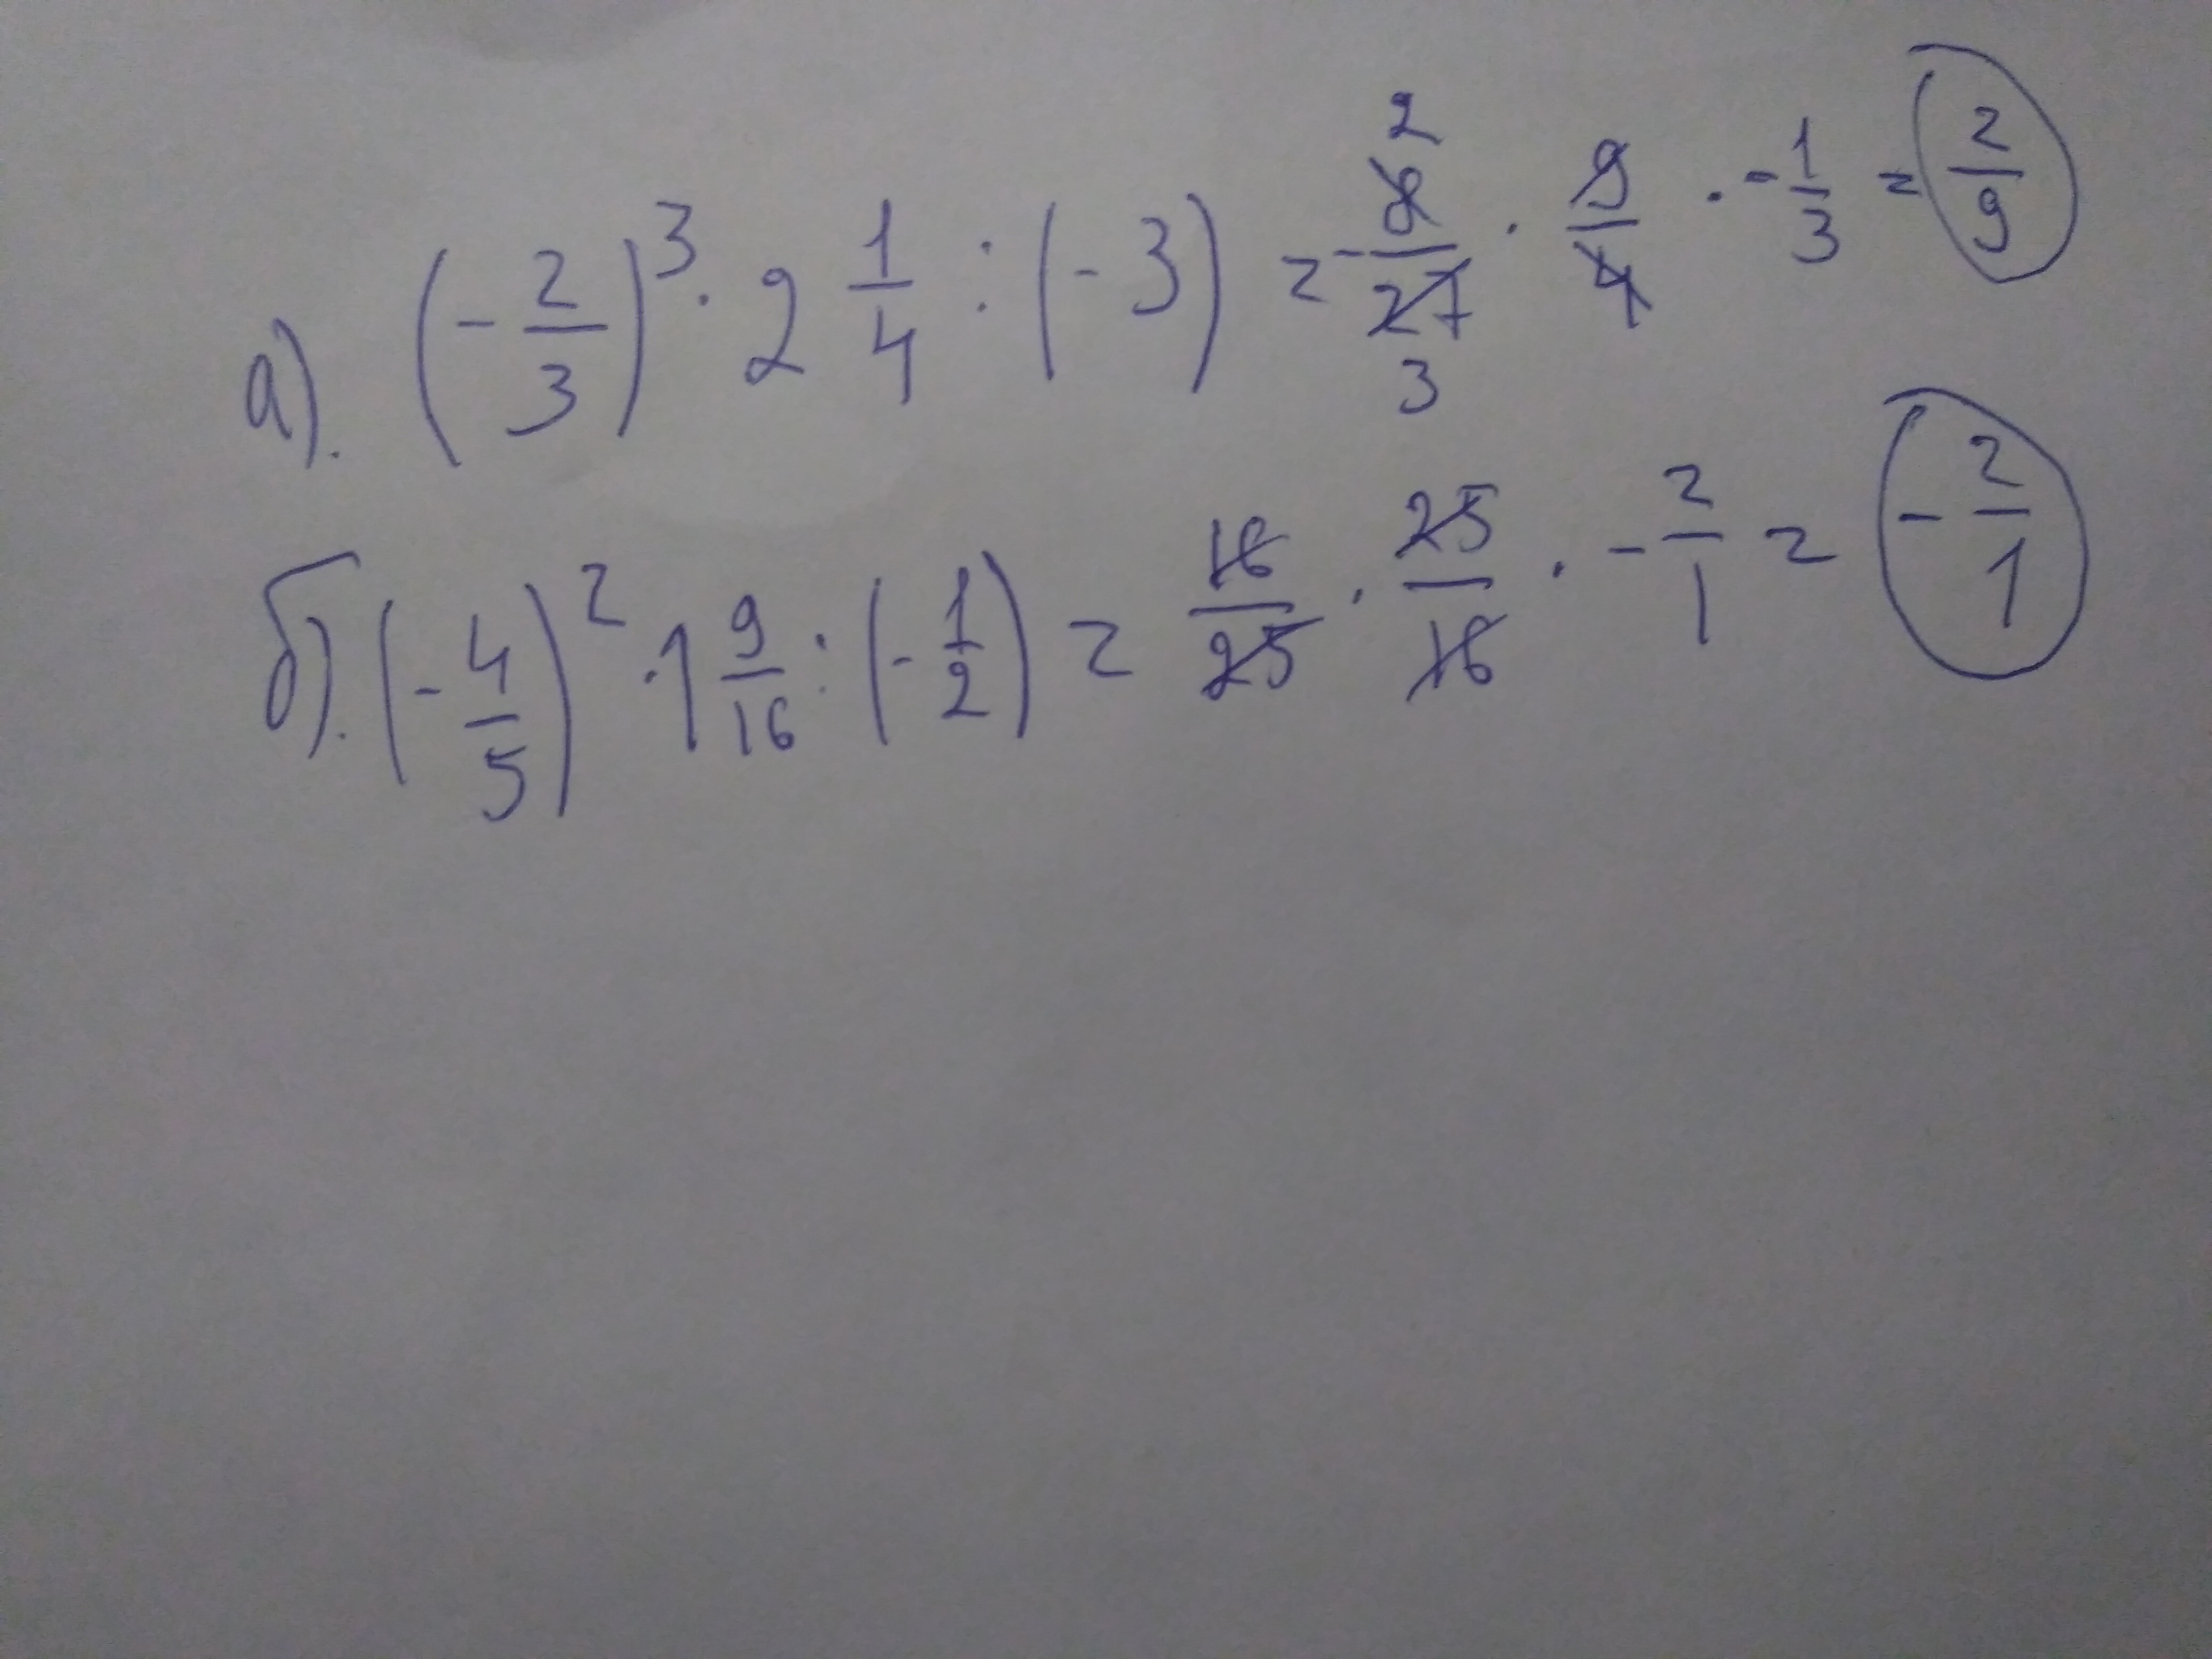 а). (-2/3)³ · 2 1/4 : (-3) = -8/27 · 9/4 · -1/3 = 2/9
2
3
б). (-4/5)² · 1 9/16 : (-1/2) = 16/25 · 25/16 · -2/1 = -2/1